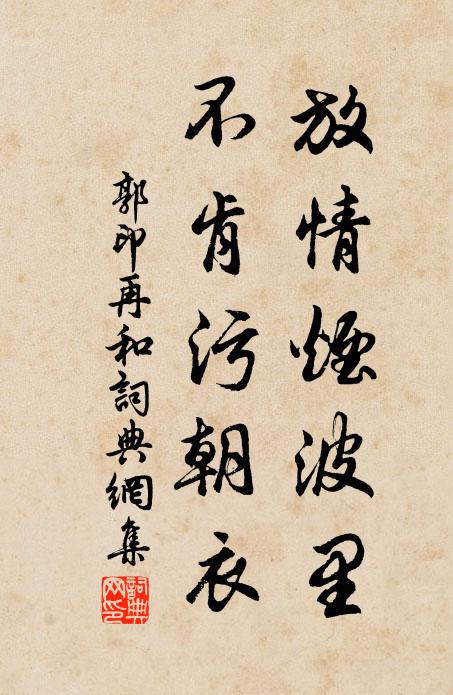 放情煙波里
不肯污朝衣
郭印再和詞典網集
詞典网印